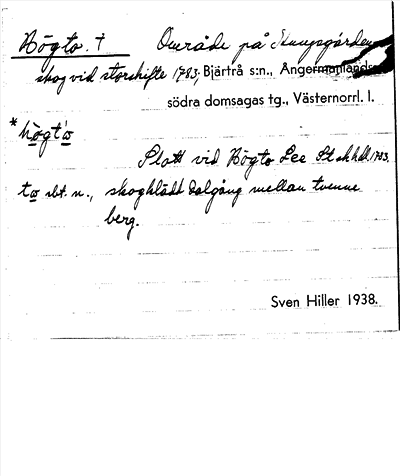 Högto. † Område på
skog vid storskifte 1783, Bjärtrå s:n., Ångermanlands
södra domsagas tg., Västernorrl. l.
*hö̀gtω
Slott vid Högto Lee St. skhdl 1783.
tω sbt. n., skogklädd dalgång mellan tvenne
berg.
Sven Hiller 1938.